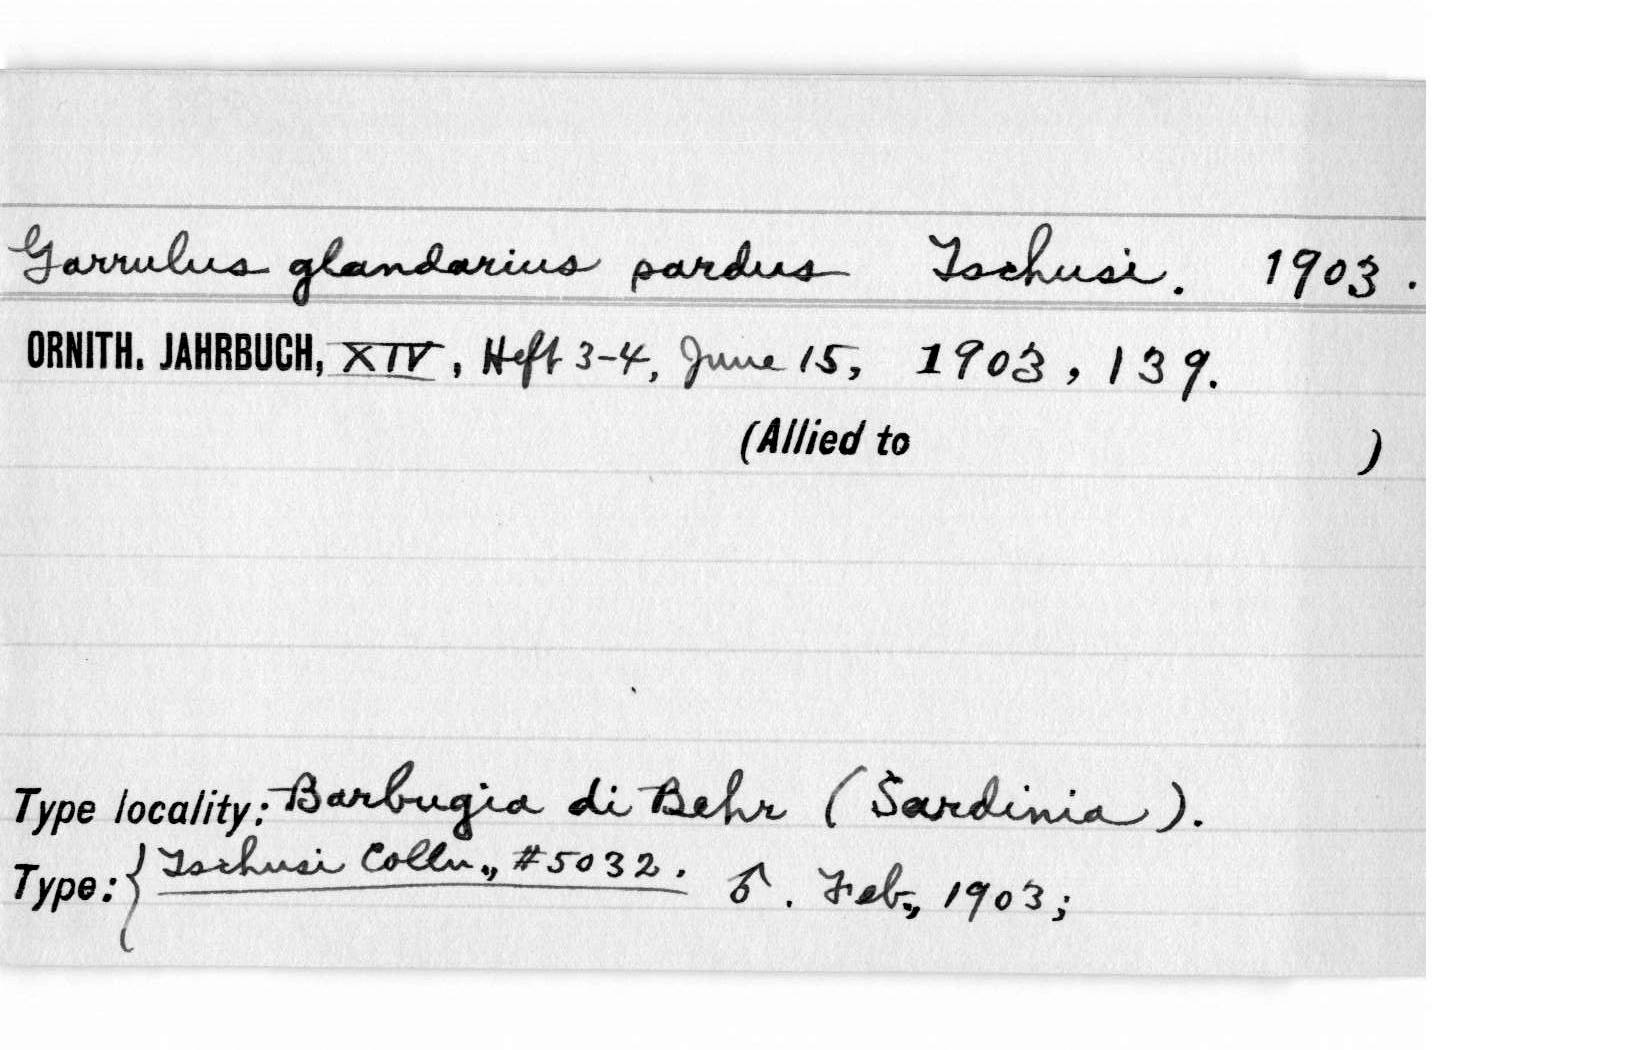 Garrulus glandarius sardus Tschusi. 1903.
ORNITH. JAHRBUCH, XIV, Heft 3-4, June 15, 1903, 139.
(Allied to )
Type locality: Barbugia di Behr (Sardinia).
Type: { Tschusi Colln., #5032. ♂. Feb., 1903;